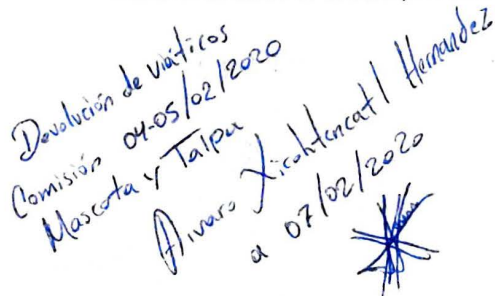 Devolución de viáticos
Comisión 04-05/02/2020
Mascota y Talpa
Alvaro Xicohtencatl Hernandez
a 07/02/2020